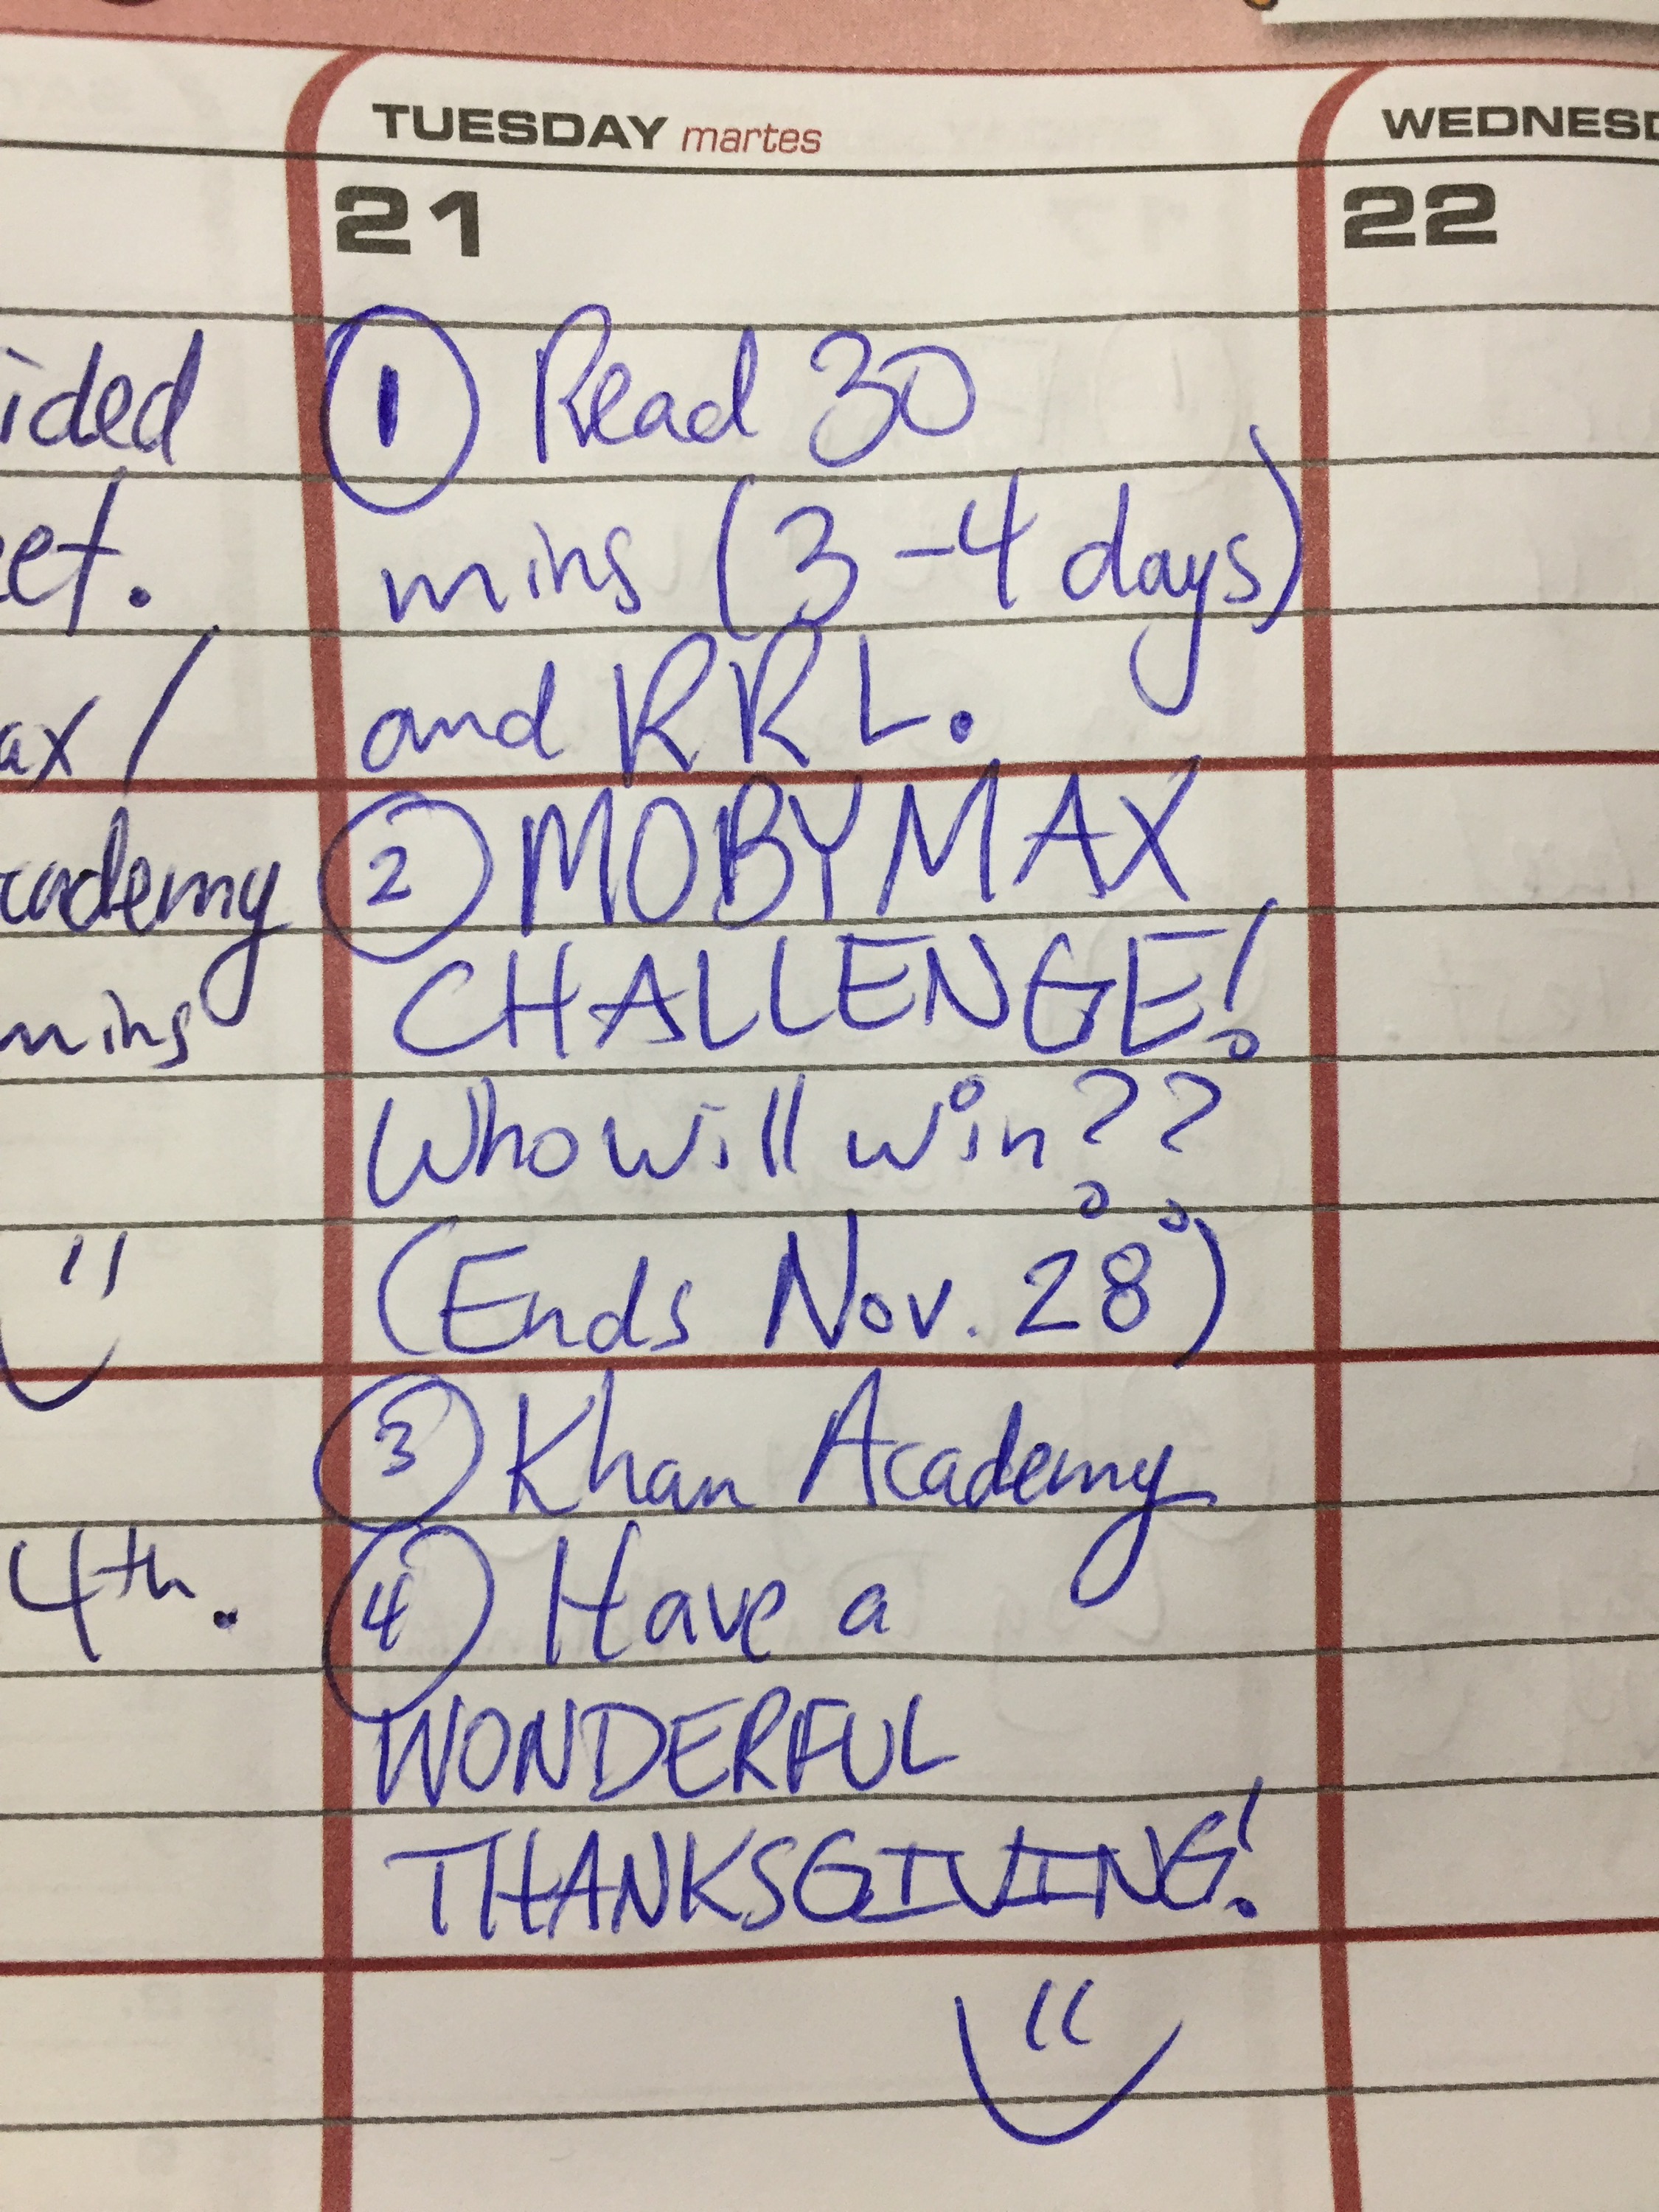 TUESDAY martes
21
① Read 30
mins (3-4 days)
and RRL.
② MOBYMAX
CHALLENGE!
Who will win??
(Ends Nov. 28)
③ Khan Academy
④ Have a
WONDERFUL
THANKSGIVING!
ided
et.
ax/
cademy
mins
4th.
WEDNESD
22